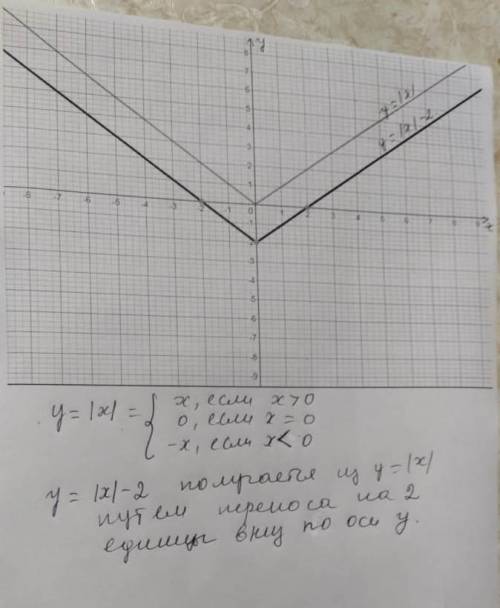 y
8
7
6
5
4
3
2
1
y=|x|
y=|x|-2
-8 -7 -6 -5 -4 -3 -2 -1 0 1 2 3 4 5 6 7 8 9 x
-1
-2
-3
-4
-5
-6
-7
-8
-9
y = |x| = { x, если x > 0
0, если x = 0
-x, если x < 0
y = |x|-2 получается из y = |x|
путем переноса на 2
единицы вниз по оси y.